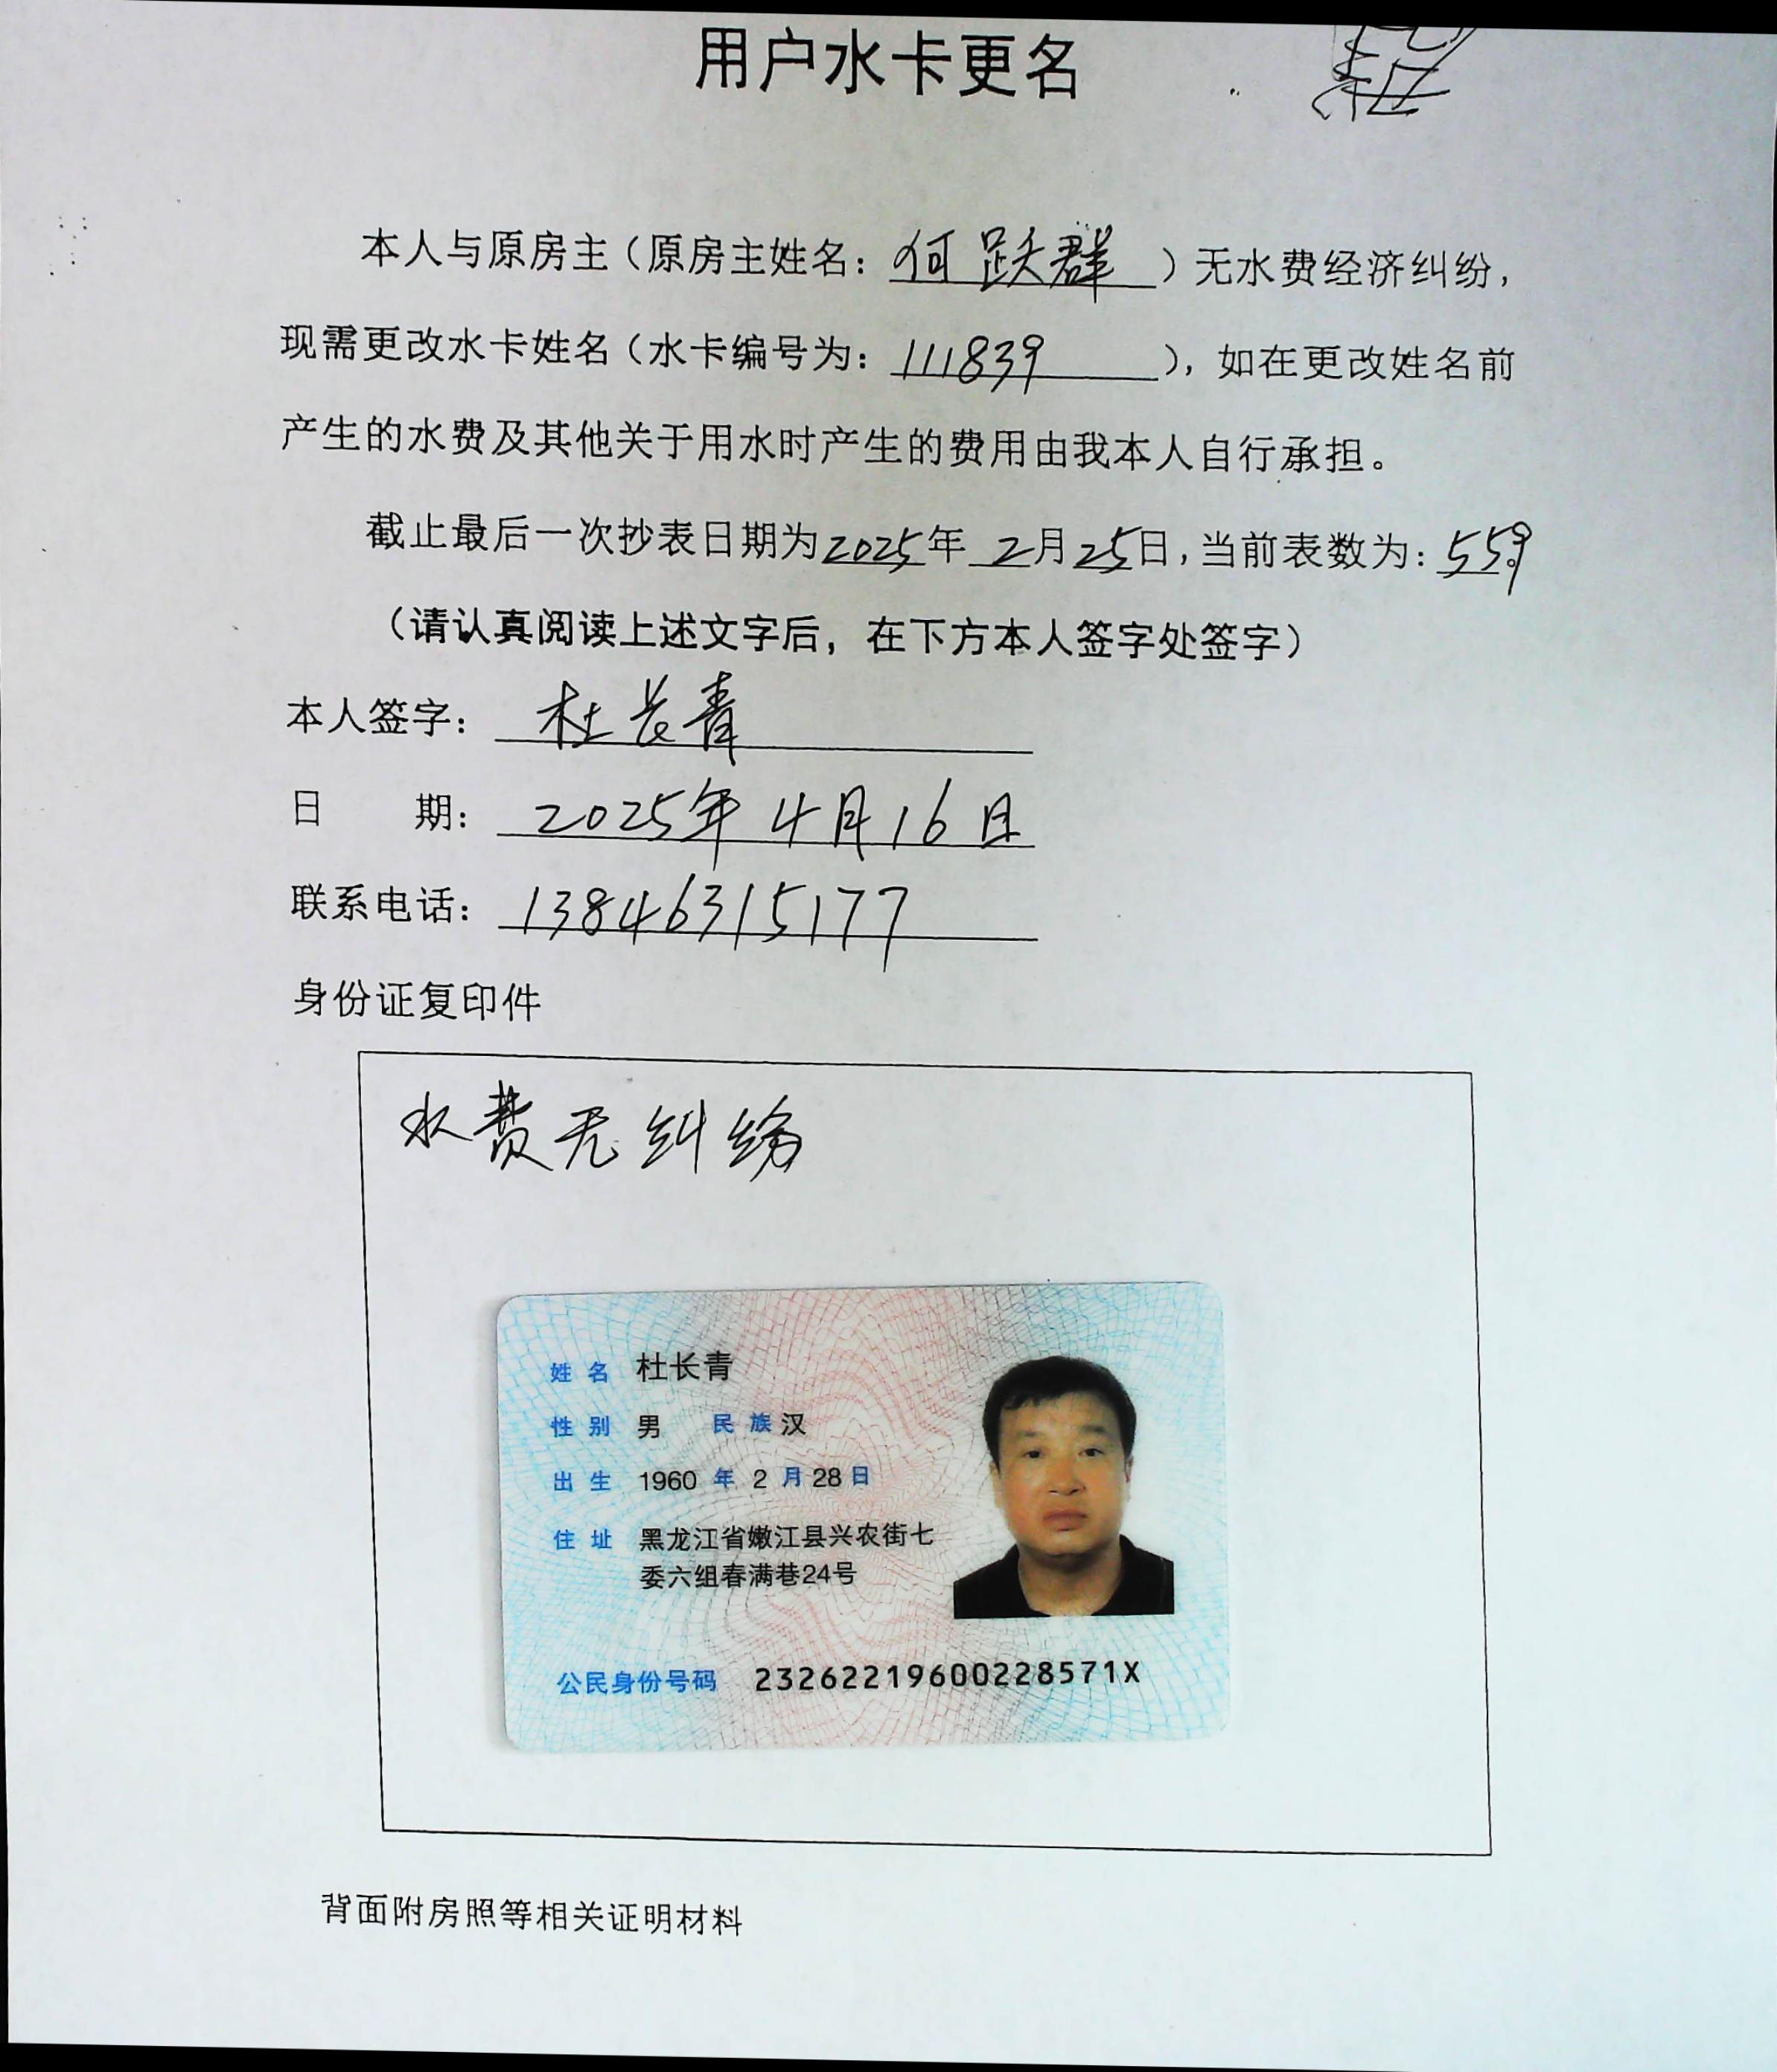 用户水卡更名
本人与原房主（原房主姓名：何跃群）无水费经济纠纷，
现需更改水卡姓名（水卡编号为：111839），如在更改姓名前
产生的水费及其他关于用水时产生的费用由我本人自行承担。
截止最后一次抄表日期为2025年2月25日，当前表数为：559。
（请认真阅读上述文字后，在下方本人签字处签字）
本人签字：杜长青
日 期：2025年4月16日
联系电话：13846315177
身份证复印件
水费无纠纷
姓名 杜长青
性别 男 民族 汉
出生 1960 年 2 月 28 日
住址 黑龙江省嫩江县兴农街七
委六组春满巷24号
公民身份号码 23262219600228571X
背面附房照等相关证明材料